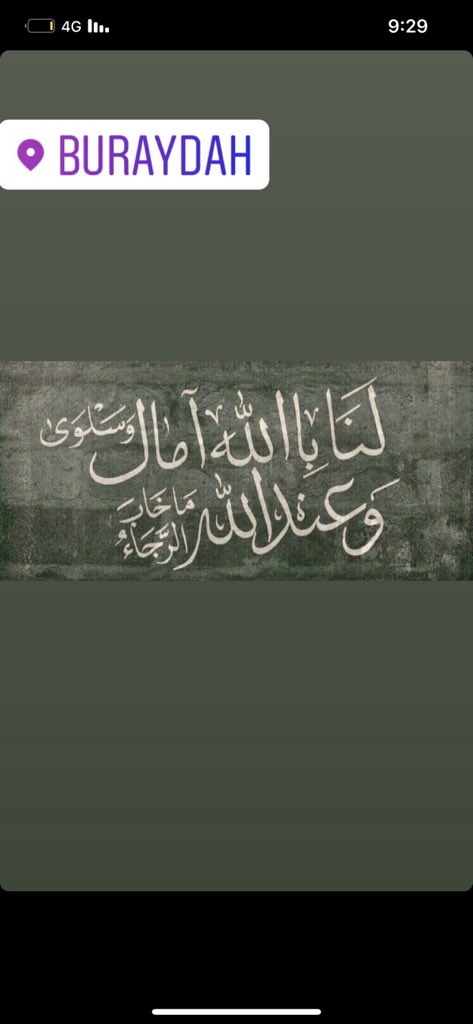 4G
9:29
BURAYDAH
لَنَا بِاالله آمال وَسَلْوَىٰ
وَعند الله مَا خَابَ الرَّجَاءُ